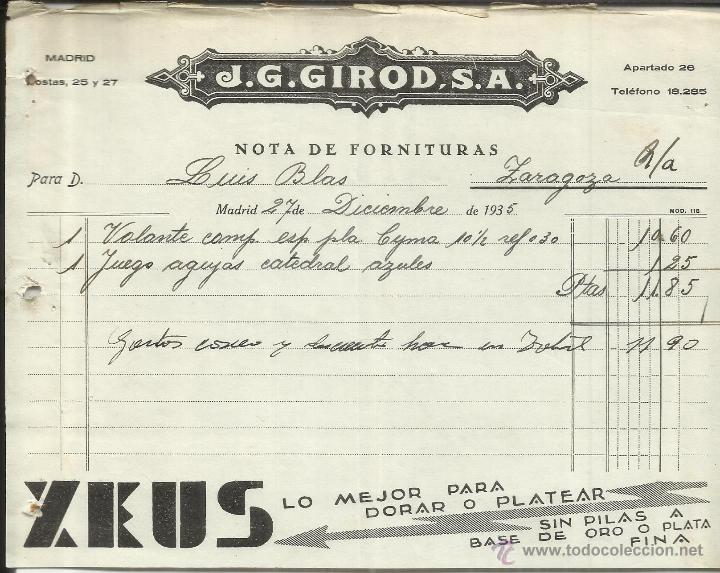 MADRID
Costas, 25 y 27
J. G. GIROD, S. A.
Apartado 26
Teléfono 18.285
NOTA DE FORNITURAS
R/a
Para D. Luis Blas Zaragoza
Madrid 27 de Diciembre de 1935
MOD. 116
1 Volante comp esp pla Cyma 10½ ref 030 10 60
1 Juego agujas catedral azules 1 25
Ptas 11.85
Gastos correo y descuento hace un total 11 90
ZEUS
LO MEJOR PARA
DORAR O PLATEAR
SIN PILAS A
BASE DE ORO O PLATA
FINA
© www.todocoleccion.net